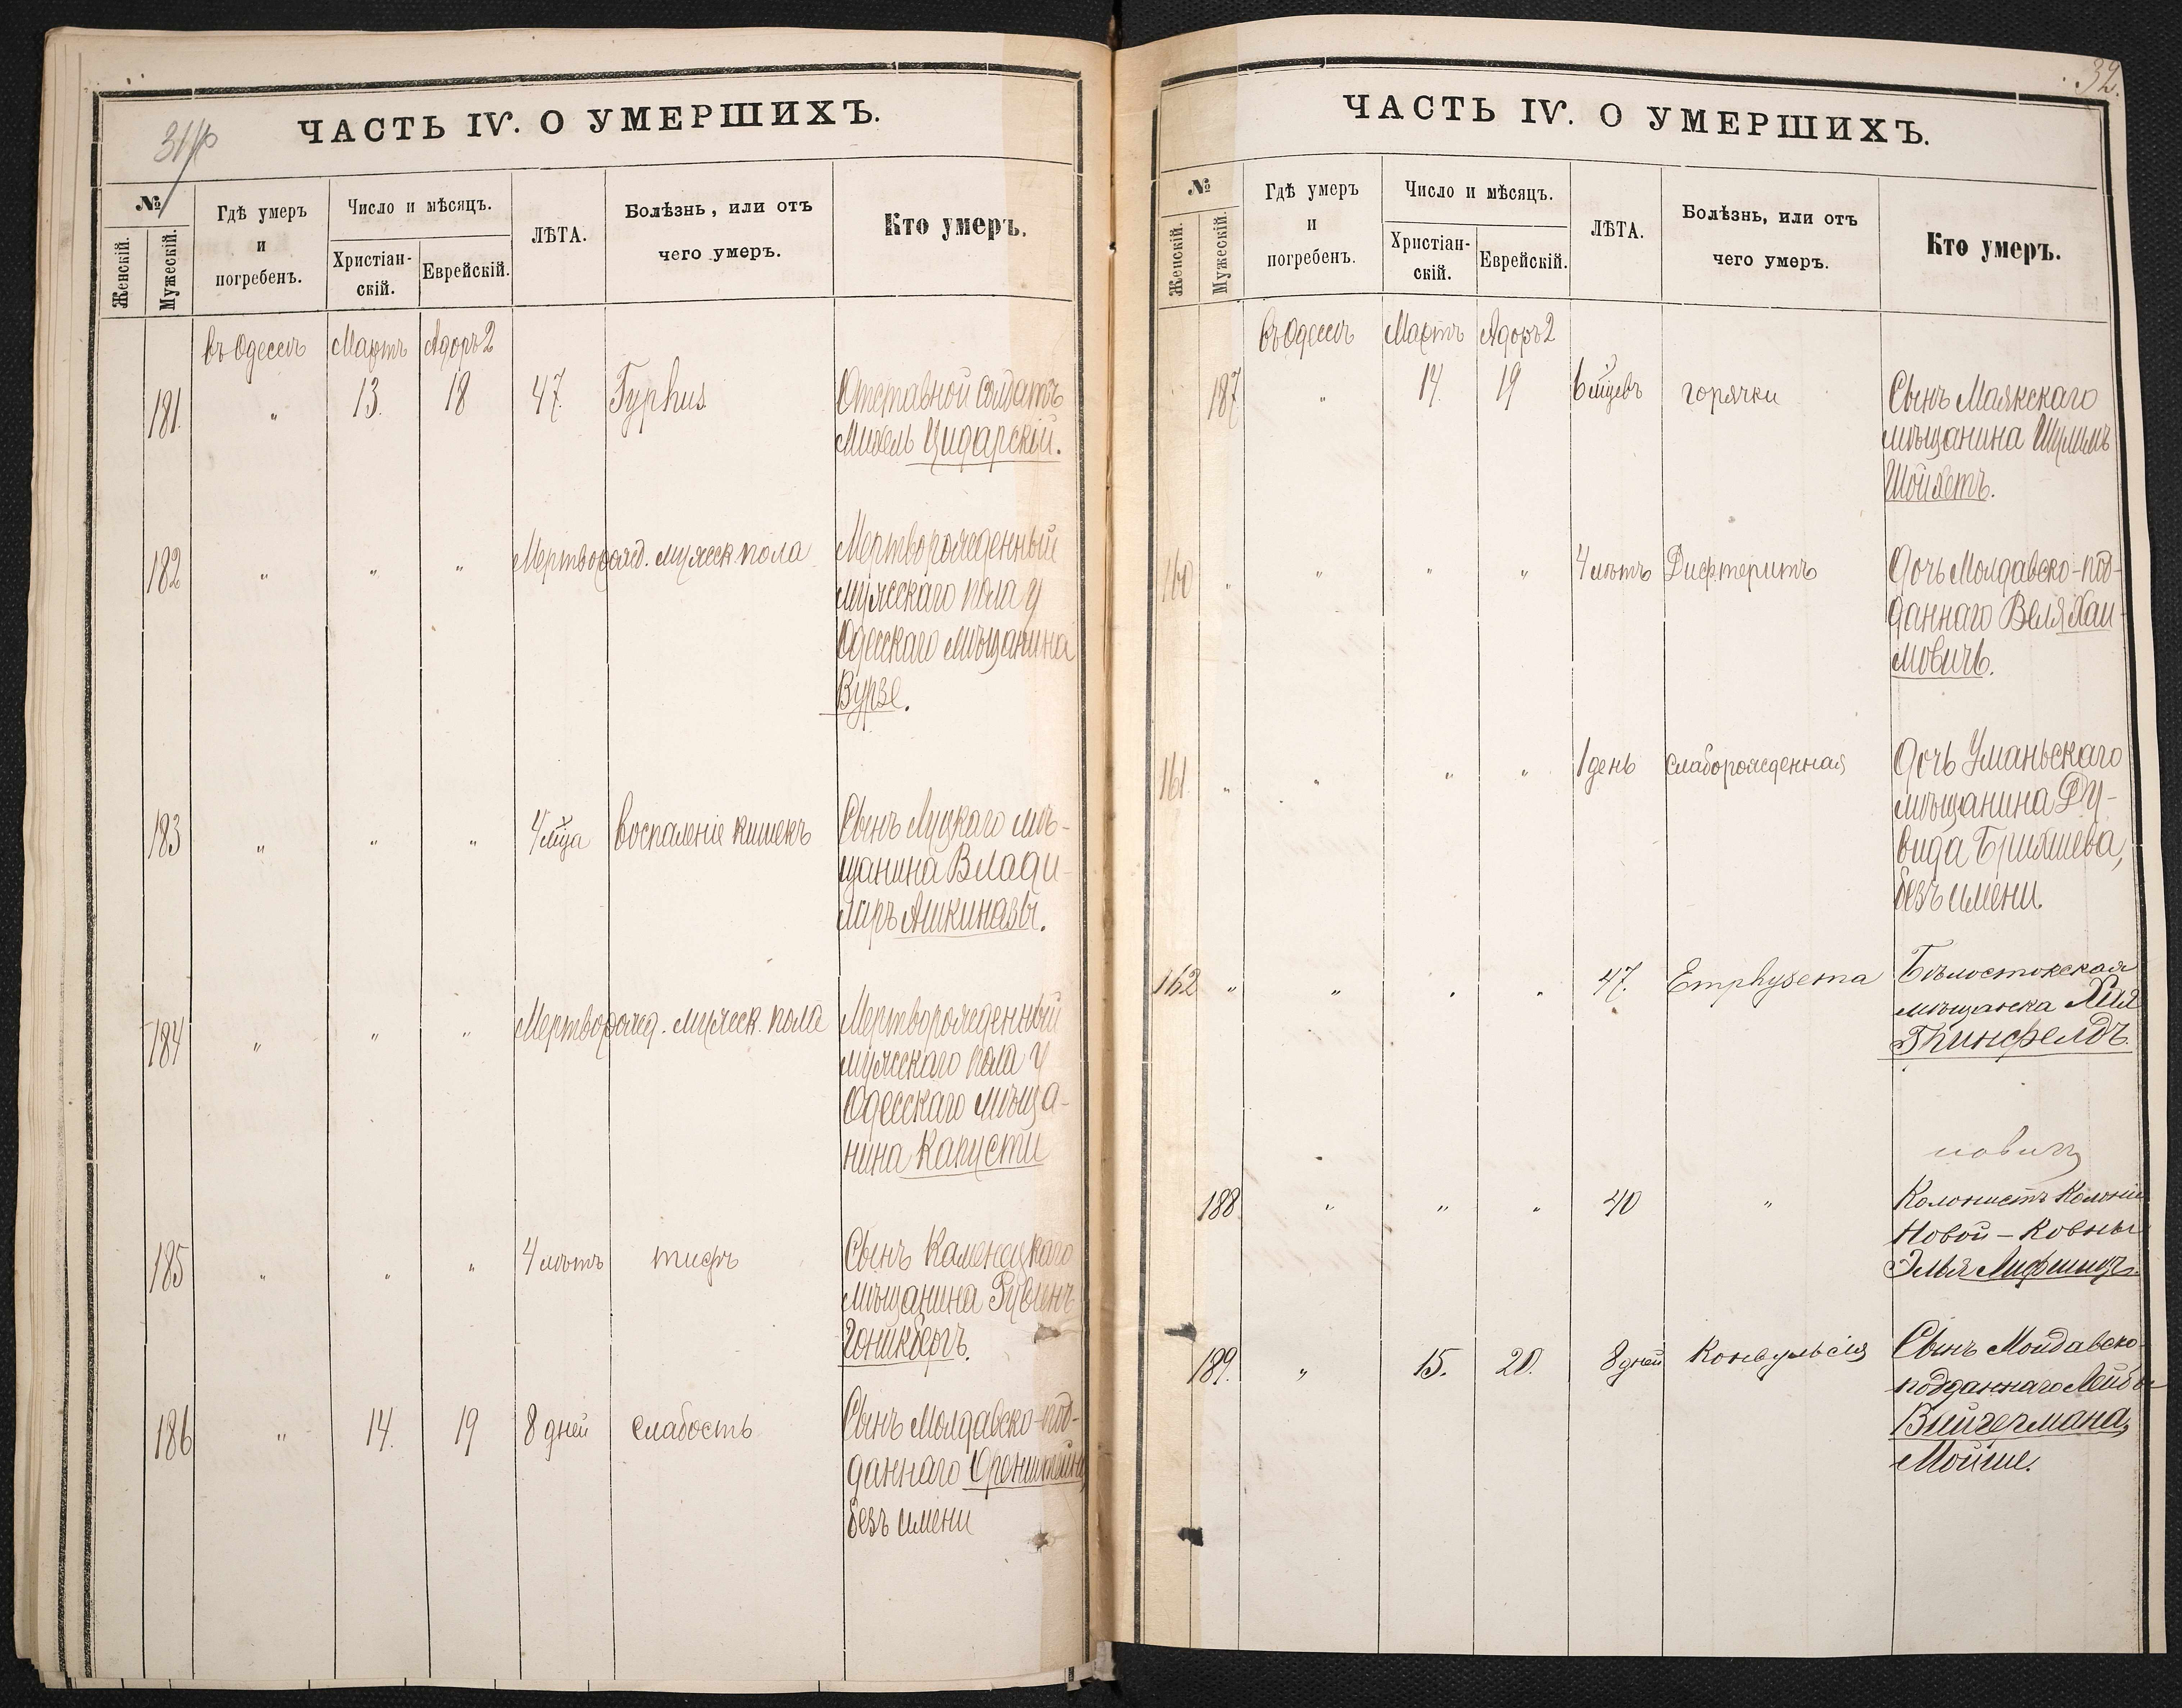 31
ЧАСТЬ IV. О УМЕРШИХЪ.
№
Женскій.
Мужескій.
Гдѣ умеръ
и
погребенъ.
Число и мѣсяцъ.
Христіан-
скій.
Еврейскій.
ЛѢТА.
Болѣзнь, или отъ
чего умеръ.
Кто умеръ.
въ Одессѣ Мартъ Адоръ 2
181. " 13. 18 47. Typhus. Отставной солдатъ
Михель Цидарскій.
182 " " " Мертворожд. мужеск. пола Мертворожденный
мужескаго пола у
Одесскаго мѣщанина
Вурзе.
183 " " " 4 мѣца воспаленіе кишекъ Сынъ Луцкаго мѣ-
щанина Влади-
миръ Ашкинази.
184 " " " Мертворожд. мужеск. пола Мертворожденный
мужескаго пола у
Одесскаго мѣща-
нина Капусти
185 " " " 4 лѣтъ тифъ Сынъ Каменецкаго
мѣщанина Рувинъ
Гоникбергъ.
186 " 14. 19 8 дней слабость Сынъ Молдавско-под-
даннаго Оренштейна
безъ имени
32.
ЧАСТЬ IV. О УМЕРШИХЪ.
№
Женскій.
Мужескій.
Гдѣ умеръ
и
погребенъ.
Число и мѣсяцъ.
Христіан-
скій.
Еврейскій.
ЛѢТА.
Болѣзнь, или отъ
чего умеръ.
Кто умеръ.
въ Одессѣ Мартъ Адоръ 2
187 " 14. 19 6 мѣцевъ горячки Сынъ Маякскаго
мѣщанина Шулимъ
Шойхетъ.
160 " " " " 4 лѣтъ Дифтеритъ Дочь Молдавско-под-
даннаго Веля Хаи-
мовичъ.
161 " " " " 1 день слаборожденная Дочь Уманьскаго
мѣщанина Ду-
вида
безъ имени.
162 " " " " 47. Emphysema Бѣлостокская
мѣщанка Хая
188 " " " 40 " Колонистъ Колоніи
Новой-Ковны
Элья Лифшицъ.
189. " 15. 20. 8 дней Конвульсія Сынъ Молдавско-
подданнаго Лейбы
Вейгермана,
Мойше.